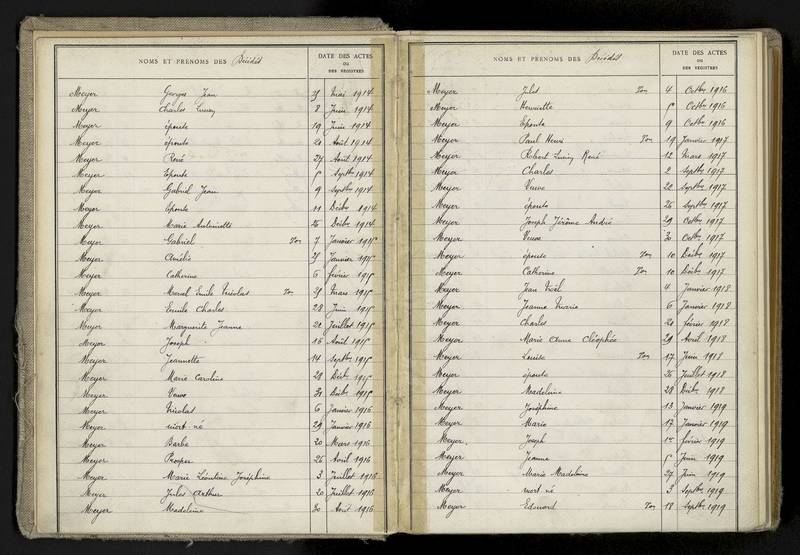 NOMS ET PRENOMS DES Décédés
DATE DES ACTES
OU
DES REGISTRES
Meyer Georges Jean 25 Mai 1914
Meyer Charles Lucien 8 Juin 1914
Meyer épouse 19 Juin 1914
Meyer épouse 21 Août 1914
Meyer René 24 Août 1914
Meyer Epouse 5 Septbre 1914
Meyer Gabriel Jean 9 Septbre 1914
Meyer Epouse 11 Décbre 1914
Meyer Marie Antoinette 26 Décbre 1914
Meyer Gabriel Ton 7 Janvier 1915
Meyer Amélie 25 Janvier 1915
Meyer Catherine 6 février 1915
Meyer Marcel Emile Nicolas Ton 25 Mars 1915
Meyer Emile Charles 28 Juin 1915
Meyer Marguerite Jeanne 20 Juillet 1915
Meyer Joseph 16 Août 1915
Meyer Jeannette 14 Septbre 1915
Meyer Marie Caroline 28 Décbre 1915
Meyer Veuve 31 Décbre 1915
Meyer Nicolas 6 Janvier 1916
Meyer mort né 29 Janvier 1916
Meyer Barbe 20 Mars 1916
Meyer Prosper 26 Avril 1916
Meyer Marie Léontine Joséphine 3 Juillet 1916
Meyer Jules Arthur 20 Juillet 1916
Meyer Madeleine 30 Août 1916
NOMS ET PRENOMS DES Décédés
DATE DES ACTES
OU
DES REGISTRES
Meyer Ton 4 Octbre 1916
Meyer Henriette 5 Octbre 1916
Meyer Epouse 9 Octbre 1916
Meyer Paul Henri Ton 19 Janvier 1917
Meyer Robert Lucien René 12 Mars 1917
Meyer Charles 2 Septbre 1917
Meyer Veuve 22 Septbre 1917
Meyer épouse 26 Septbre 1917
Meyer Joseph Jérôme André 29 Octbre 1917
Meyer Veuve 30 Octbre 1917
Meyer épouse Ton 10 Décbre 1917
Meyer Catherine Ton 10 Décbre 1917
Meyer Jean Noël 4 Janvier 1918
Meyer Jeanne Marie 6 Janvier 1918
Meyer Charles 20 février 1918
Meyer Marie Anne Cléophée 29 Avril 1918
Meyer Louise Ton 17 Juin 1918
Meyer épouse 26 Juillet 1918
Meyer Madeleine 28 Décbre 1918
Meyer Joséphine 13 Janvier 1919
Meyer Marie 17 Janvier 1919
Meyer Joseph 1er février 1919
Meyer Jeanne 5 Juin 1919
Meyer Marie Madeleine 27 Juin 1919
Meyer mort né 3 Septbre 1919
Meyer Edouard Ton 18 Septbre 1919